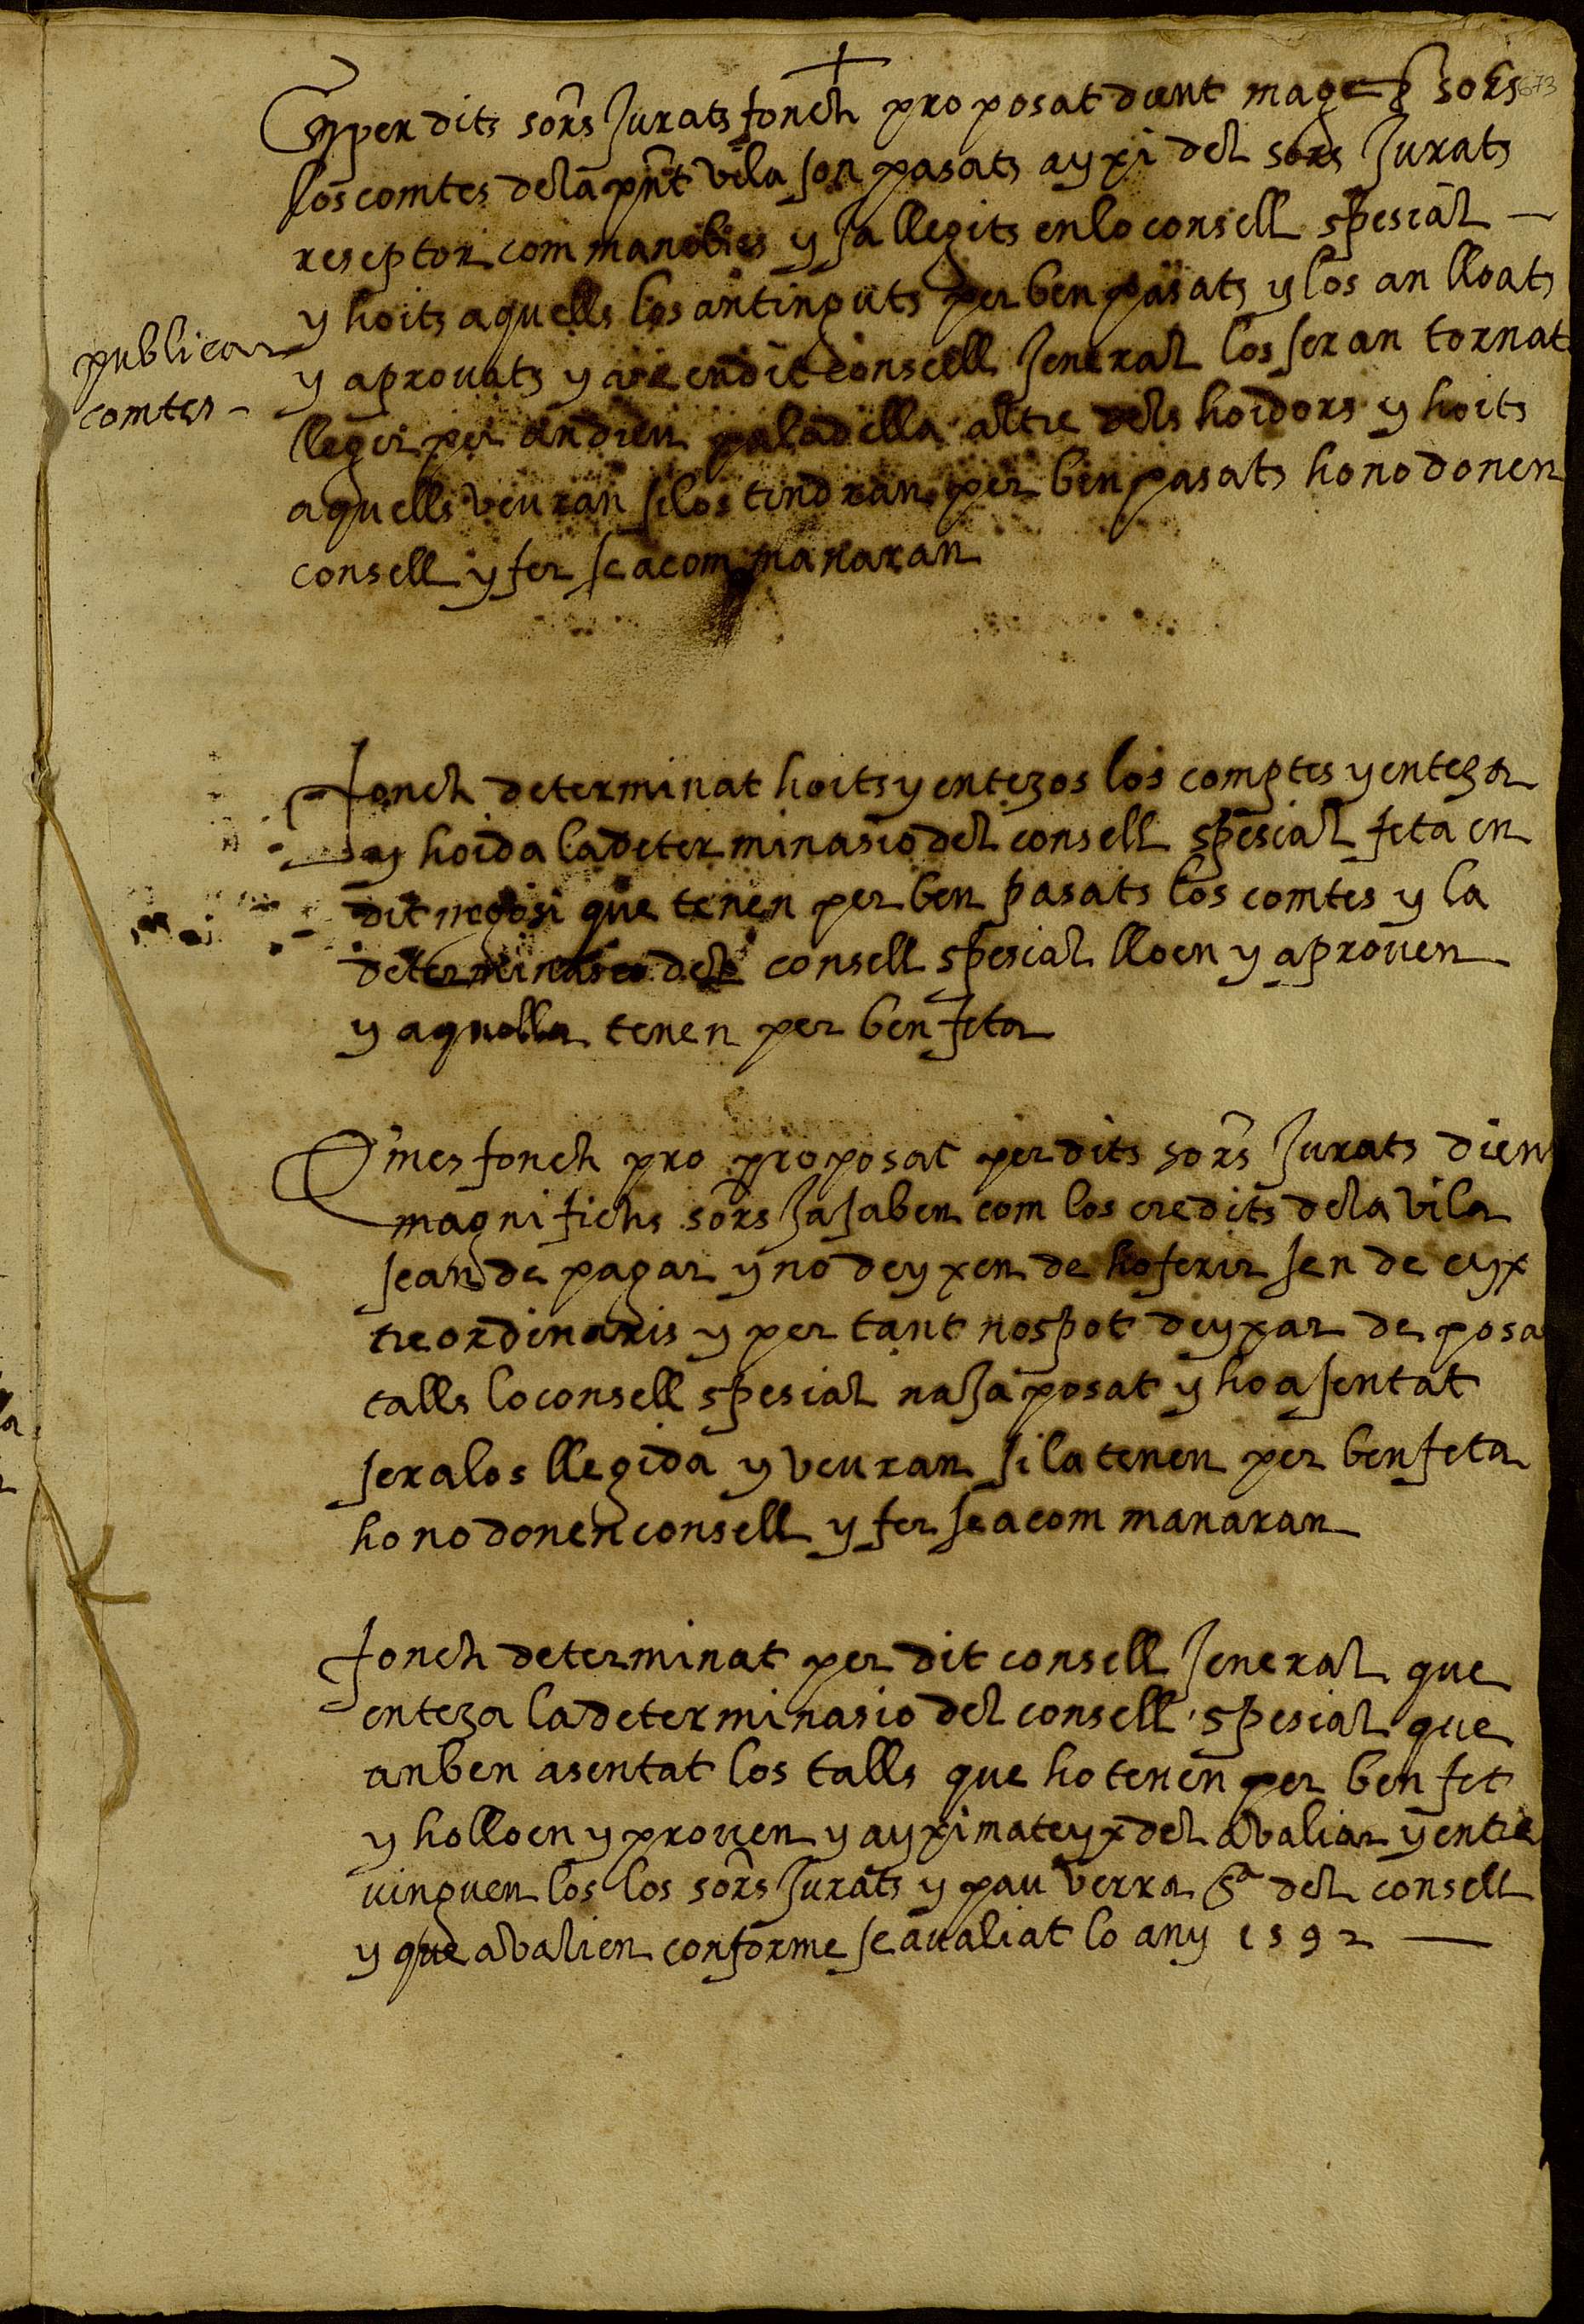 673
E per dits sors Jurats fonch proposat dient magchs sors
los comtes dela pnt vila son pasats ayxi del sors Jurats
reseptor com manobies y ja llegits en lo consell spesial —
y hoits aquells los an tinguts per ben pasats y los an lloats
publicar
comtes -
y aprouats y are en dit consell Jeneral los seran tornats
llegir per andreu paladella altre dels hoidors y hoits
aquells veuran si los tindran per ben pasats ho no donen
consell y fer sea com manaran
fonch determinat hoits y entezos los comptes y enteza
y hoida la determinasio del consell spesial feta en
dit negosi que tenen per ben pasats los comtes y la
determinasio del consell spesial lloen y aprouen
y aquella tenen per ben feta
E mes fonch pro proposat per dits sors Jurats dien
magnifichs sors Ja saben com los credits dela vila
sean de pagar y no deyxen de hoferir sen de eyx
treordinaris y per tant nos pot deyxar de posar
talls lo consell spesial na Ja posat y ho asentat
seralos llegida y veuran si la tenen per ben feta
ho no donen consell y fer sea com manaran
fonch determinat per dit consell Jeneral que
enteza la determinasio del consell spesial que
an ben asentat los talls que ho tenen per ben fet
y ho lloen y prouen y ayxi mateyx del avaliar y entre
uinguen los los sors Jurats y pau verra sa del consell
y que avalien conforme se aualiat lo any 1592 —